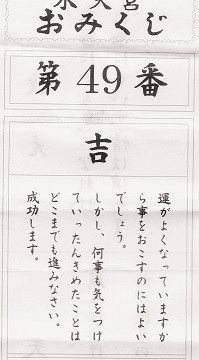 水天宮
おみくじ
第49番
吉
運がよくなっていますか
ら事をおこすのにはよい
でしょう。
しかし、何事も気をつけ
ていったんきめたことは
どこまでも進みなさい。
成功します。